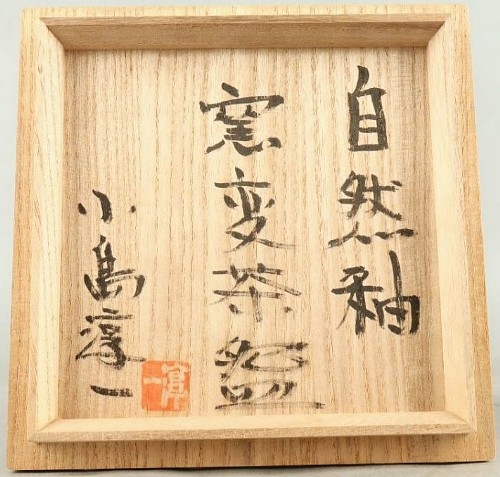 自然釉
窯変茶盌
小島淳一